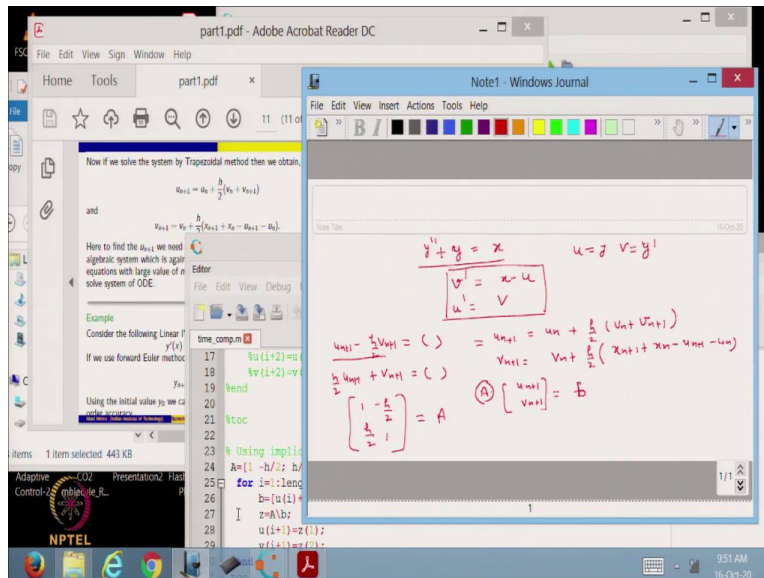 part1.pdf - Adobe Acrobat Reader DC
File Edit View Sign Window Help
Home Tools part1.pdf ×
11 (11 of
Now if we solve the system by Trapezoidal method then we obtain,
u_{n+1} = u_n + h/2 (v_n + v_{n+1})
and
v_{n+1} = v_n + h/2 (x_{n+1} + x_n - u_{n+1} - u_n).
Here to find the u_{n+1} we need
algebraic system which is again
equations with large value of n
solve system of ODE.
Example
Consider the following Linear I
y'(x)
If we use forward Euler method
y_{n+
Using the initial value y_0 we ca
order accuracy
items 1 item selected 443 KB
Editor
File Edit View Debug
time_comp.m
17 %u(i+2)=u(
18 %v(i+2)=v(
19 %end
20
21 %toc
22
23 % Using implic
24 A=[1 -h/2; h/
25 for i=1:leng
26 b=[u(i)+
27 z=A\b;
28 u(i+1)=z(1);
29 v(i+1)=z(2);
Note1 - Windows Journal
File Edit View Insert Actions Tools Help
B I
Note Title
16-Oct-20
y'' + y = x u = y v = y'
v' = x - u
u' = v
u_{n+1} - h/2 v_{n+1} = ( ) = u_{n+1} = u_n + h/2 (v_n + v_{n+1})
h/2 u_{n+1} + v_{n+1} = ( ) v_{n+1} = v_n + h/2 (x_{n+1} + x_n - u_{n+1} - u_n)
[1 -h/2
h/2 1] = A
A [u_{n+1}
v_{n+1}] = b
1/1
1
Adaptive CO2 Presentation2 Flash
Control-2 mblecule_R... P
NPTEL
9:51 AM
16-Oct-20